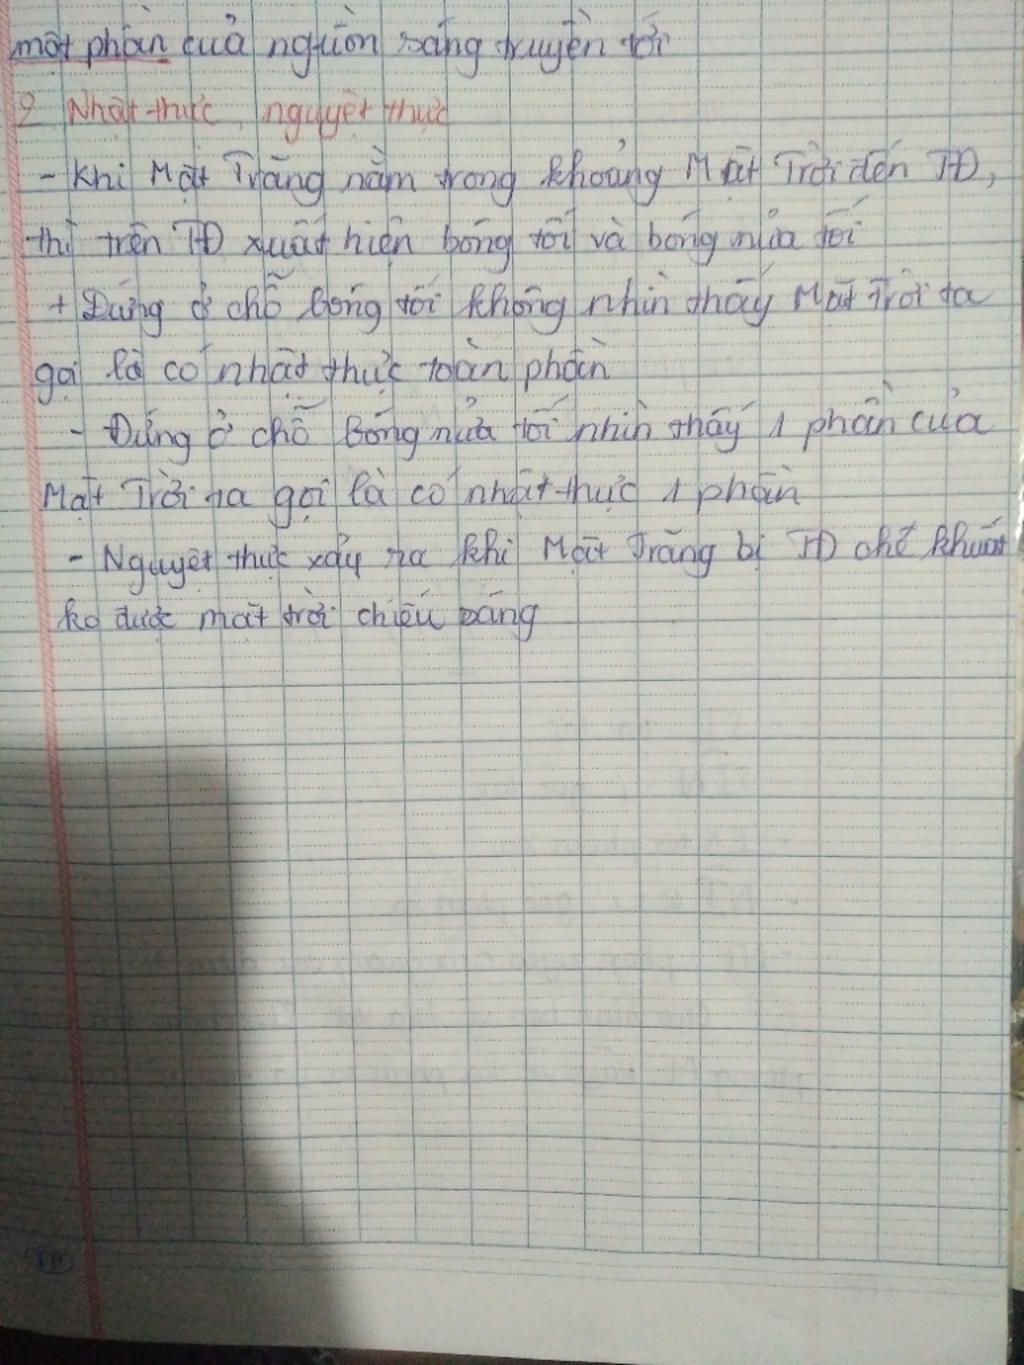 một phần của nguồn sáng truyền tới
2 Nhật thực, nguyệt thực
- Khi Mặt Trăng nằm trong khoảng Mặt Trời đến TĐ,
thì trên TĐ xuất hiện bóng tối và bóng nửa tối
+ Đứng ở chỗ bóng tối không nhìn thấy Mặt Trời ta
gọi là có nhật thực toàn phần
- Đứng ở chỗ bóng nửa tối nhìn thấy 1 phần của
Mặt Trời ta gọi là có nhật thực 1 phần
- Nguyệt thực xảy ra khi Mặt Trăng bị TĐ che khuất
ko được mặt trời chiếu sáng